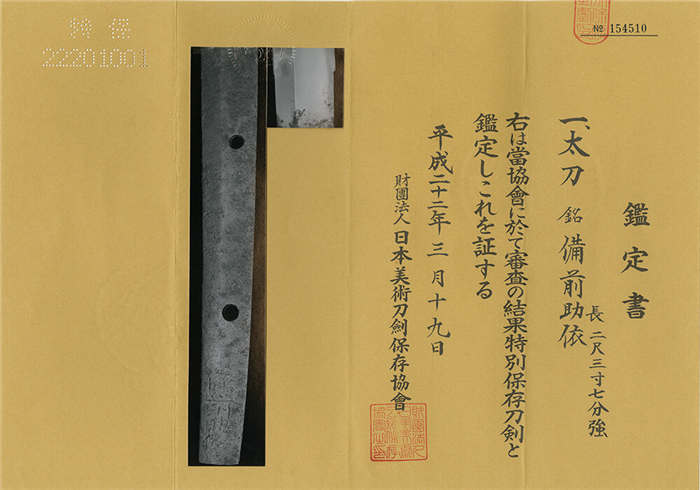 鑑定書
一、太刀 銘 備前助依
長二尺三寸七分強
右は當協會に於て審査の結果特別保存刀剣と
鑑定しこれを証する
平成二十二年三月十九日
財團法人日本美術刀劍保存協會
№ 154510
特保
22201001